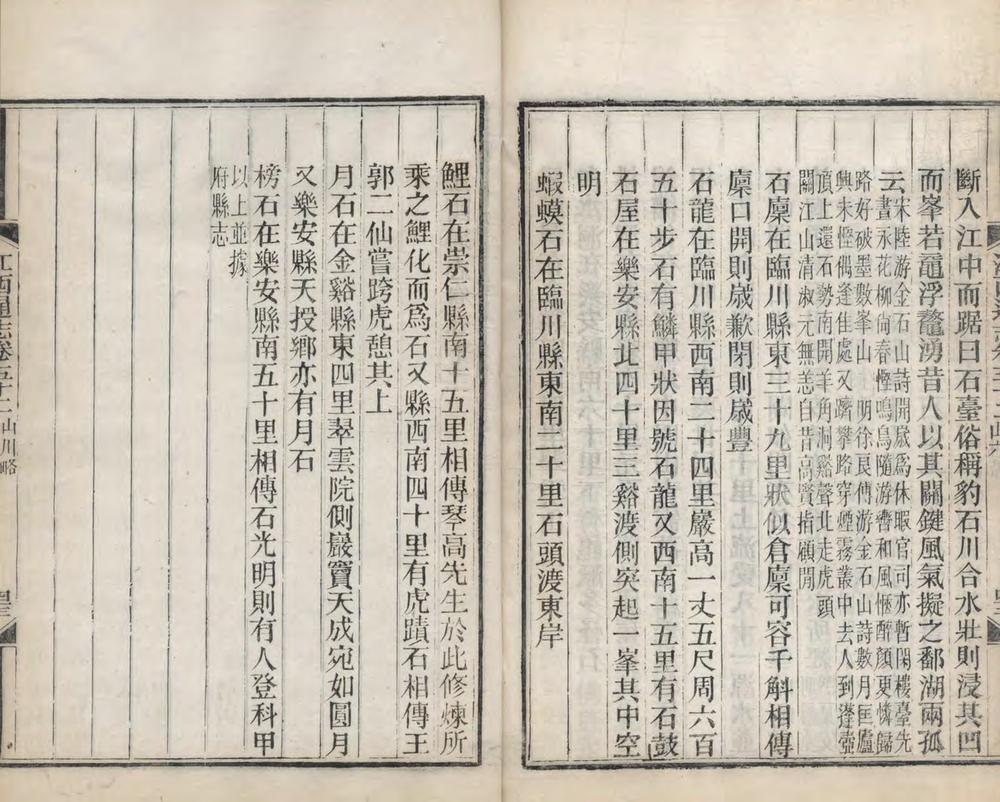 斷入江中而踞曰石臺俗稱豹石川合水壯則浸其凹
而峯若黿浮鼇湧昔人以其關鍵風氣擬之鄱湖兩孤
云宋陸游金石山詩開歲為休暇官司亦暫閑樓臺先
晝永花柳尚春慳鳴鳥隨游轡和風愜醉顏更憐歸
路好破墨數峯山 明徐良傅游金石山詩數月匡廬
興未慳偶逢佳處又躋攀路穿煙霧叢中去人到蓬壺
頂上還石勢南開羊角洞谿聲北走虎頭
關江山清淑元無恙自昔高賢指顧閒
石廩在臨川縣東三十九里狀似倉廩可容千斛相傳
廩口開則歲歉閉則歲豐
石龍在臨川縣西南二十四里巖高一丈五尺周六百
五十步石有鱗甲狀因號石龍又西南十五里有石鼓
石屋在樂安縣北四十里三谿渡側突起一峯其中空
明
蝦蟆石在臨川縣東南二十里石頭渡東岸
鯉石在崇仁縣南十五里相傳琴高先生於此修煉所
乘之鯉化而為石又縣西南四十里有虎蹟石相傳王
郭二仙嘗跨虎憩其上
月石在金谿縣東四里翠雲院側巖竇天成宛如圓月
又樂安縣天授鄉亦有月石
榜石在樂安縣南五十里相傳石光明則有人登科甲
以上並據
府縣志
江西通志卷五十二山川略